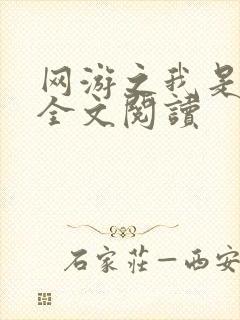 网游之我是
全文閱讀
石家莊－西安